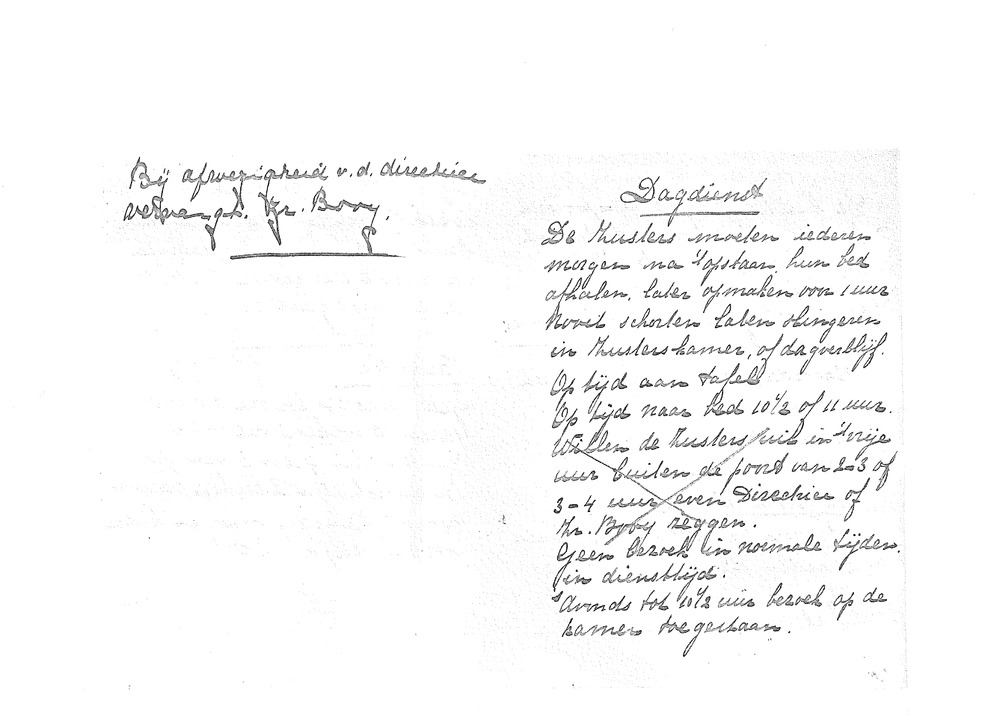 Bij afwezigheid v.d. directrice
vervangt. Zr. Booy.
Dagdienst
De Zusters moeten iederen
morgen na 't opstaan, hun bed
afhalen, later opmaken voor 1 uur
Nooit schorten laten slingeren
in Zusterskamer, of dagverblijf.
Op tijd aan tafel
Op tijd naar bed 10½ of 11 uur.
Willen de Zusters uit in 't vrije
uur buiten de poort van 2-3 of
3-4 uur even Directrice of
Zr. Booy zeggen.
Geen bezoek in normale tijden.
in diensttijd.
's Avonds tot 10½ uur bezoek op de
kamer toegestaan.